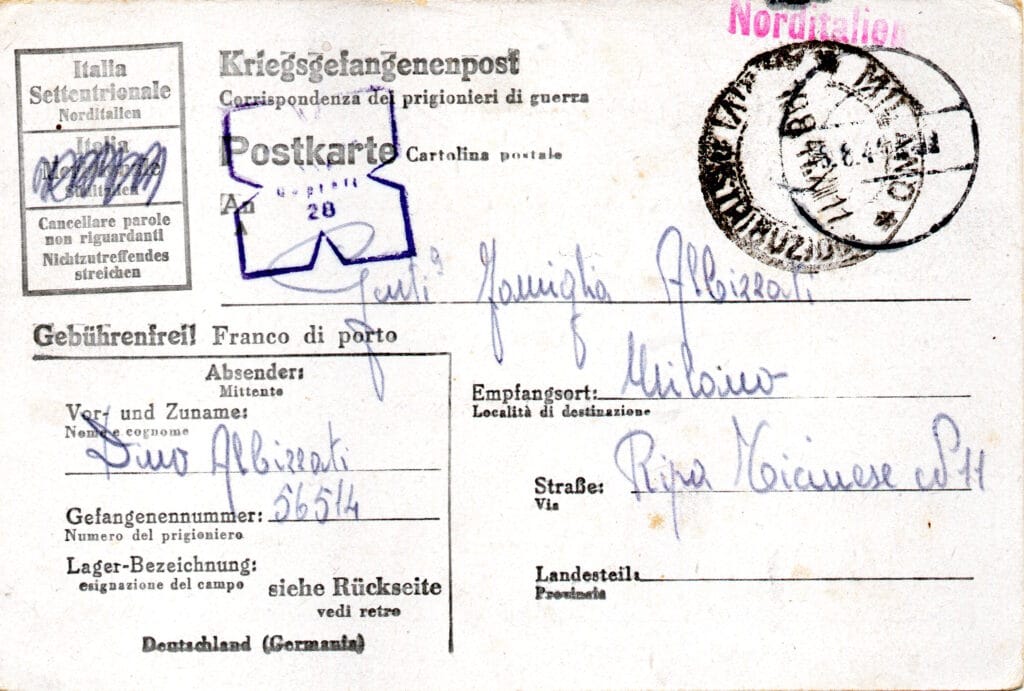 Norditalien
Italia
Settentrionale
Norditalien
Italia
Süditalien
Cancellare parole
non riguardanti
Nichtzutreffendes
streichen
Kriegsgefangenenpost
Corrispondenza dei prigionieri di guerra
Postkarte Cartolina postale
Geprüft
28
An
MILANO
Gent. Famiglia Albizzati
Gebührenfrei! Franco di porto
Absender:
Mittente
Vor- und Zuname:
Nome e cognome
Dino Albizzati
Gefangenennummer: 56514
Numero del prigioniero
Lager-Bezeichnung:
esignazione del campo
siehe Rückseite
vedi retro
Deutschland (Germania)
Empfangsort: Milano
Località di destinazione
Straße: Ripa Ticinese N 11
Via
Landesteil:
Provincia